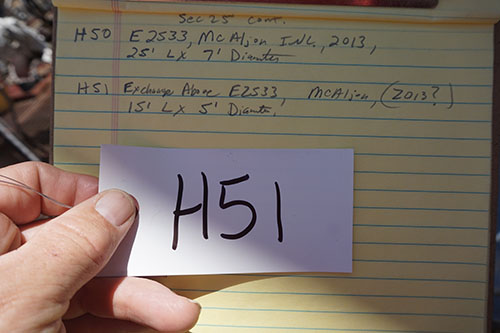 Sec 25 cont.
H50 E2533, McAljon INC., 2013,
25' L x 7' Diameter
H51 Exchange Above E2533, McAljon, (2013?)
15' L x 5' Diamete.
H51